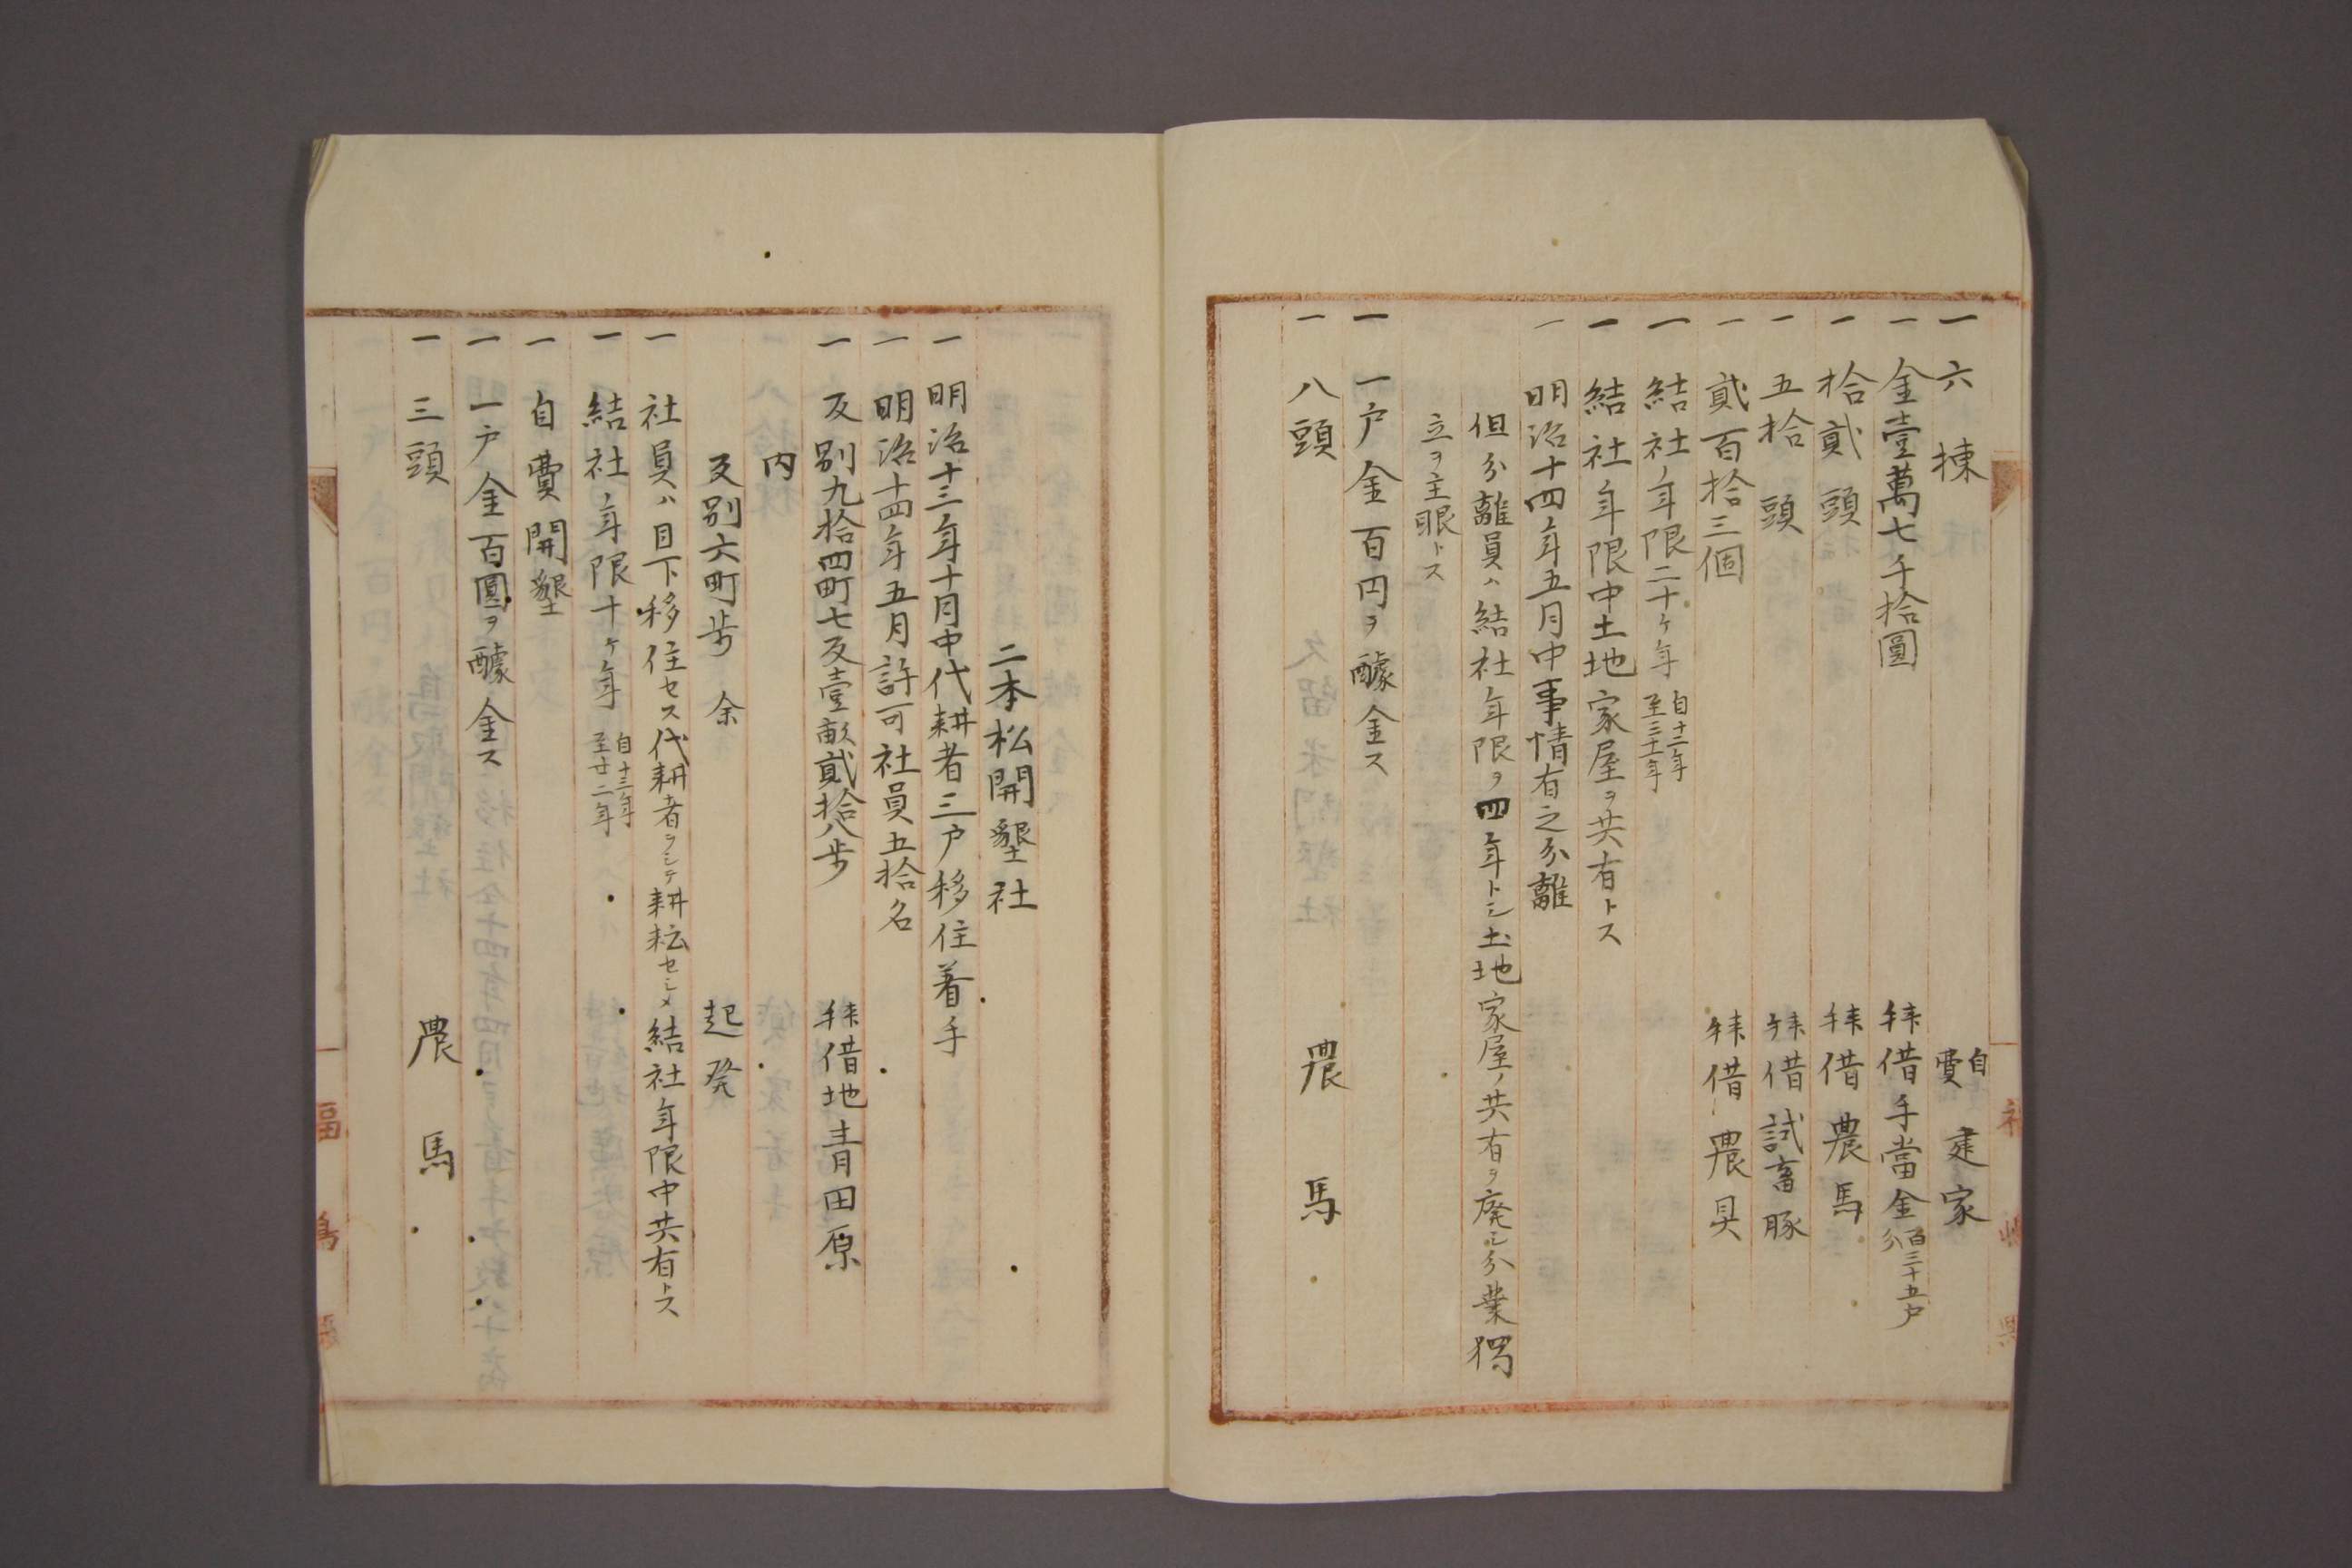 一 六棟 自費 建家
一 金壹萬七千拾圓 拜借手當金 百三十五戸分
一 拾貳頭 拜借農馬
一 五拾頭 拜借試畜豚
一 貳百拾三個 拜借農具
一 結社ノ年限二十ケ年 自十二年至三十一年
一 結社年限中土地家屋ヲ共有トス
一 明治十四年五月中事情有之分離
但分離員ハ結社年限ヲ四年トシ土地家屋ノ共有ヲ廃シ分業獨
立ヲ主眼トス
一 一戸金百円ヲ醵金ス
一 八頭 農馬
二本松開墾社
一 明治十三年十月中代耕者三戸移住着手
一 明治十四年五月許可社員五拾名
一 反別九拾四町七反壹畝貳拾八歩 拜借地青田原
内
反別六町歩余 起発
一 社員ハ目下移住セス代耕者ヲシテ耕耘セシメ結社年限中共有トス
一 結社ノ年限十ケ年 自十三年至廿二年
一 自費開墾
一 一戸金百圓ヲ醵金ス
一 三頭 農馬
福島縣